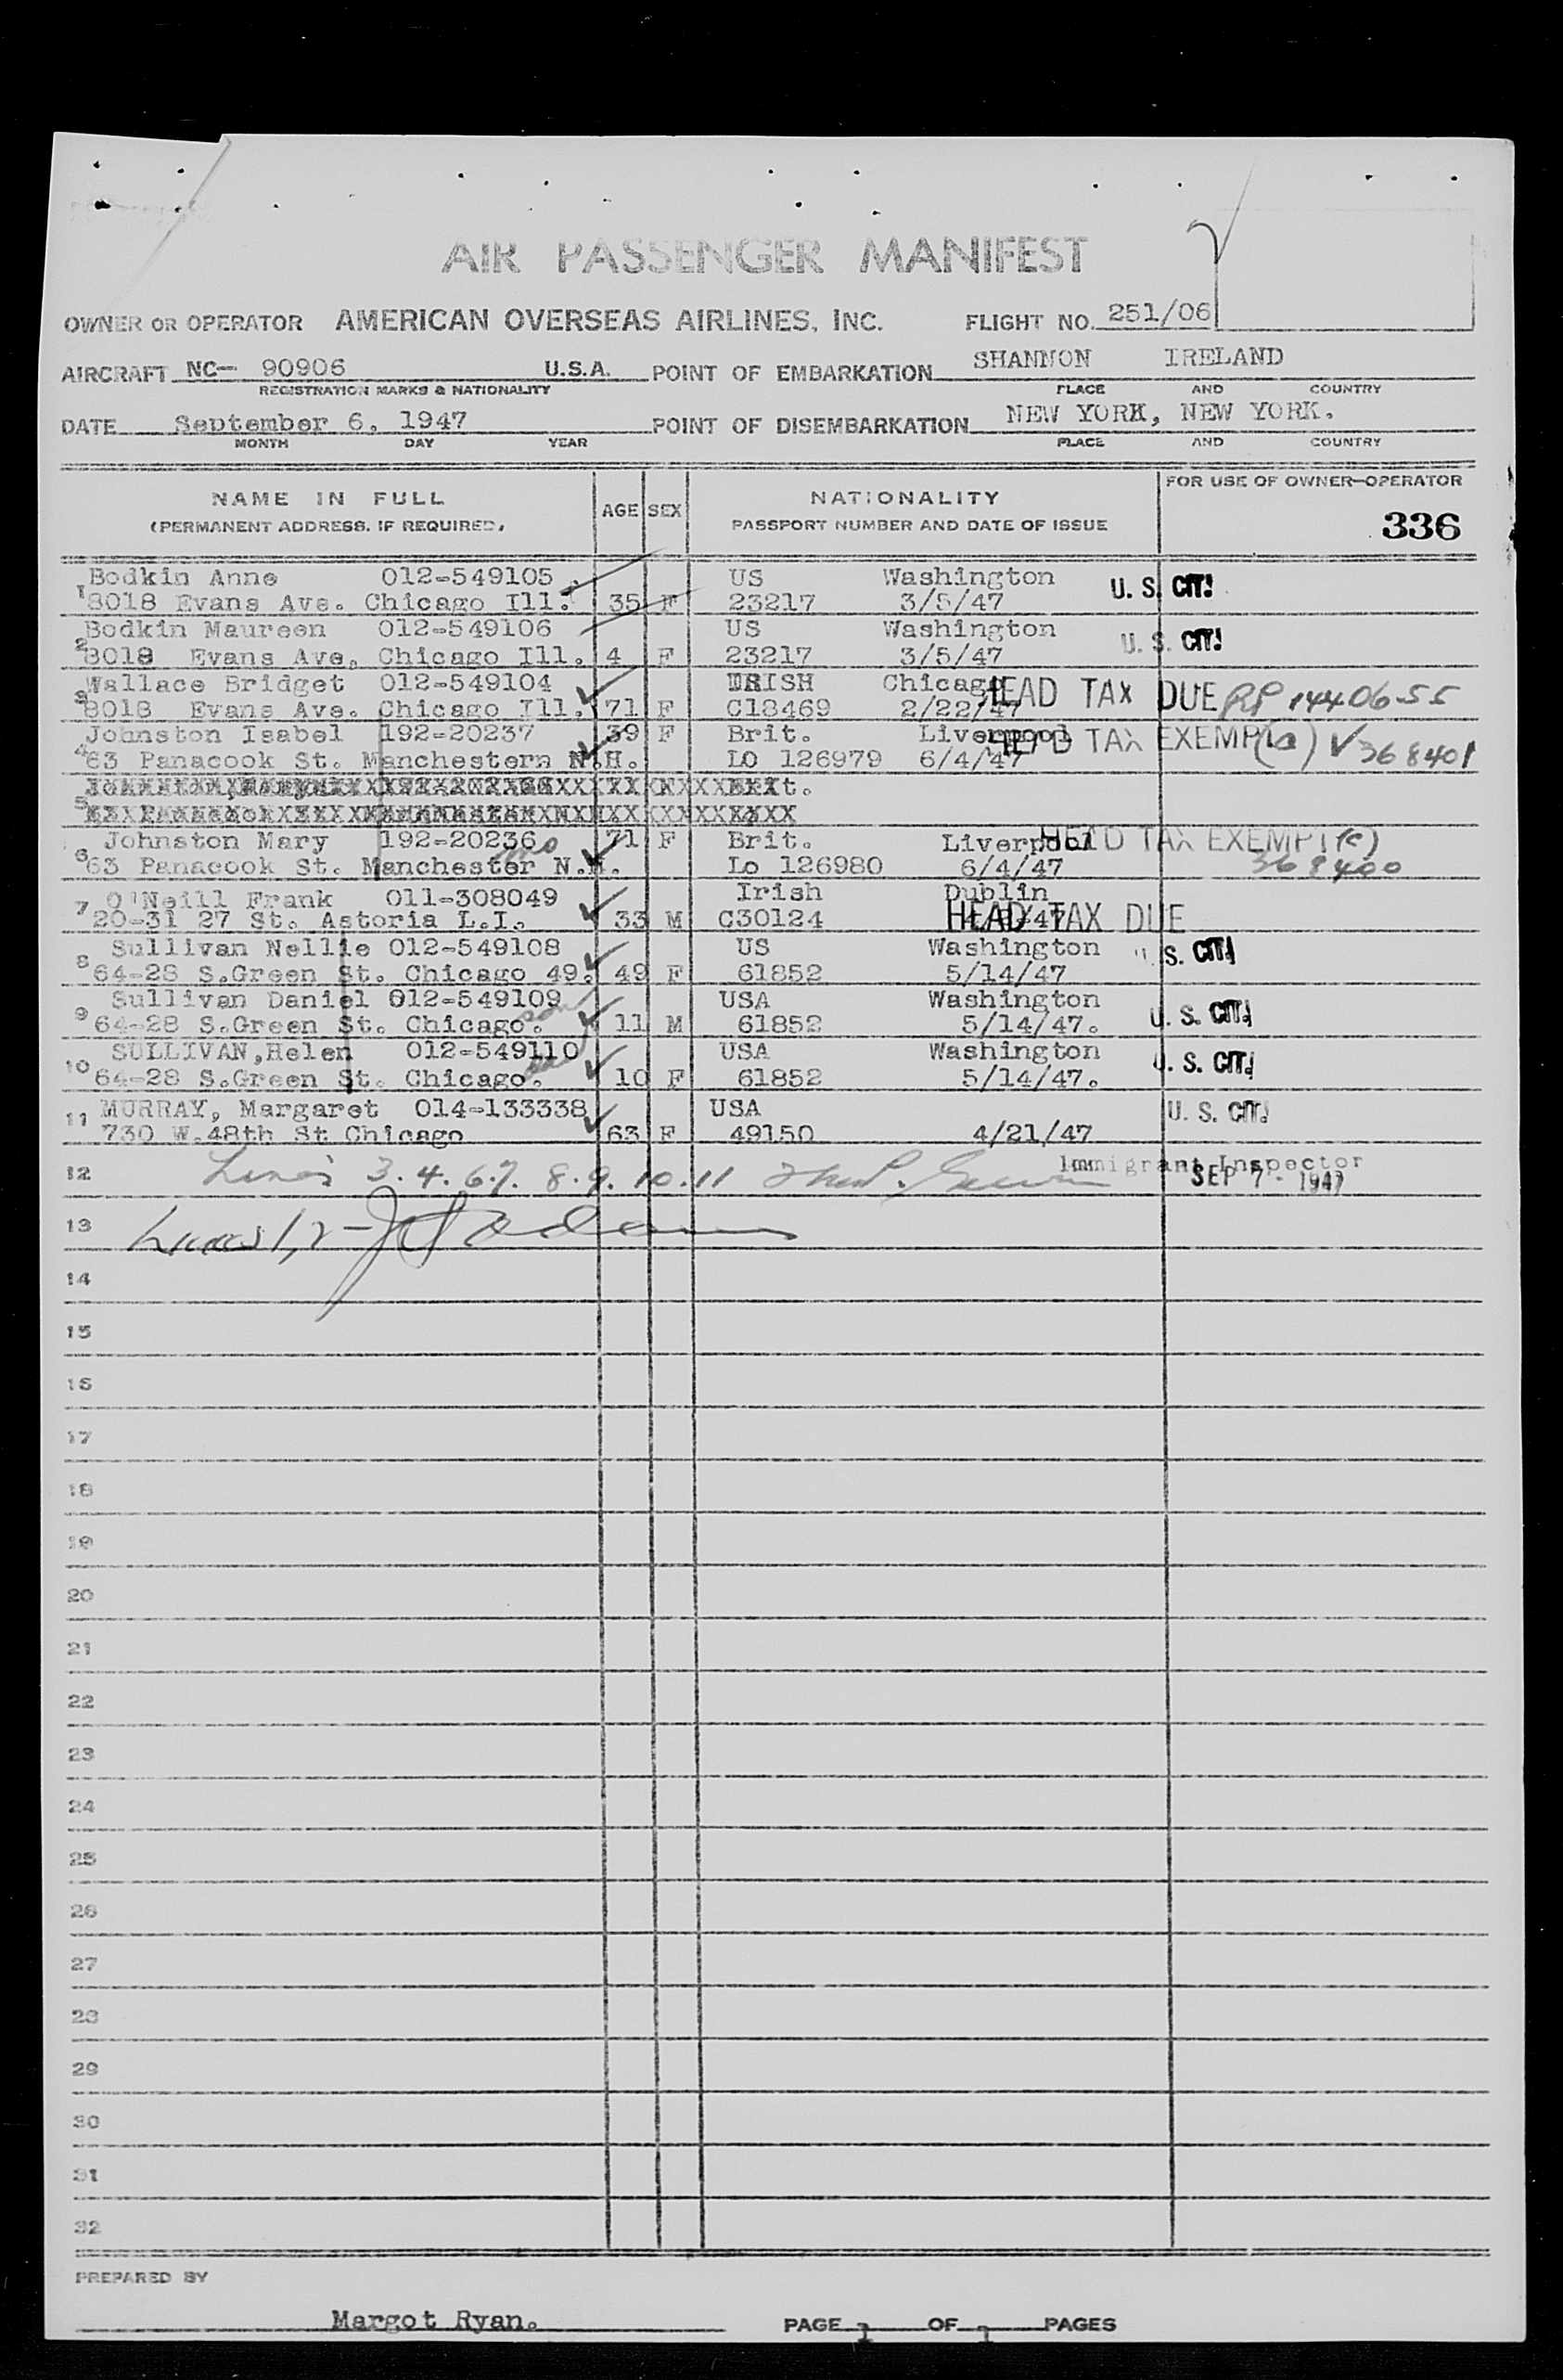 AIR PASSENGER MANIFEST
OWNER OR OPERATOR AMERICAN OVERSEAS AIRLINES, INC. FLIGHT NO. 251/06
AIRCRAFT NC— 90906 U.S.A. POINT OF EMBARKATION SHANNON IRELAND
REGISTRATION MARKS & NATIONALITY PLACE AND COUNTRY
DATE September 6, 1947 POINT OF DISEMBARKATION NEW YORK, NEW YORK.
MONTH DAY YEAR PLACE AND COUNTRY
NAME IN FULL AGE SEX NATIONALITY FOR USE OF OWNER—OPERATOR
(PERMANENT ADDRESS, IF REQUIRED) PASSPORT NUMBER AND DATE OF ISSUE 336
1 Bodkin Anne 012-549105 US Washington U. S. CIT!
8018 Evans Ave. Chicago Ill. 35 F 23217 3/5/47
2 Bodkin Maureen 012-549106 US Washington U. S. CIT!
8018 Evans Ave. Chicago Ill. 4 F 23217 3/5/47
3 Wallace Bridget 012-549104 IRISH Chicago HEAD TAX DUE RP 1440655
8018 Evans Ave. Chicago Ill. 71 F C18469 2/22/47
4 Johnston Isabel 192-20237 39 F Brit. Liverpool HEAD TAX EXEMPT (a) 368401
63 Panacook St. Manchestern N.H. LO 126979 6/4/47
5
6 Johnston Mary 192-20236 71 F Brit. Liverpool HEAD TAX EXEMPT (c)
63 Panacook St. Manchester N.H. Lo 126980 6/4/47 368400
7 O'Neill Frank 011-308049 Irish Dublin
20-31 27 St. Astoria L.I. 33 M C30124 HEAD TAX DUE
8 Sullivan Nellie 012-549108 US Washington U. S. CIT!
64-28 S.Green St. Chicago 49. 49 F 61852 5/14/47
9 Sullivan Daniel 012-549109 son USA Washington U. S. CIT!
64-28 S.Green St. Chicago. 11 M 61852 5/14/47.
10 SULLIVAN,Helen 012-549110 USA Washington U. S. CIT!
64-28 S.Green St. Chicago. 10 F 61852 5/14/47.
11 MURRAY, Margaret 014-133338 USA U. S. CIT!
730 W.48th St Chicago 63 F 49150 4/21/47
12 Lines 3.4.6.7. 8.9.10.11 Immigrant Inspector
SEP 7 - 1947
13 Lines 1,2 -
14
15
16
17
18
19
20
21
22
23
24
25
26
27
28
29
30
31
32
PREPARED BY
Margot Ryan. PAGE 1 OF 1 PAGES